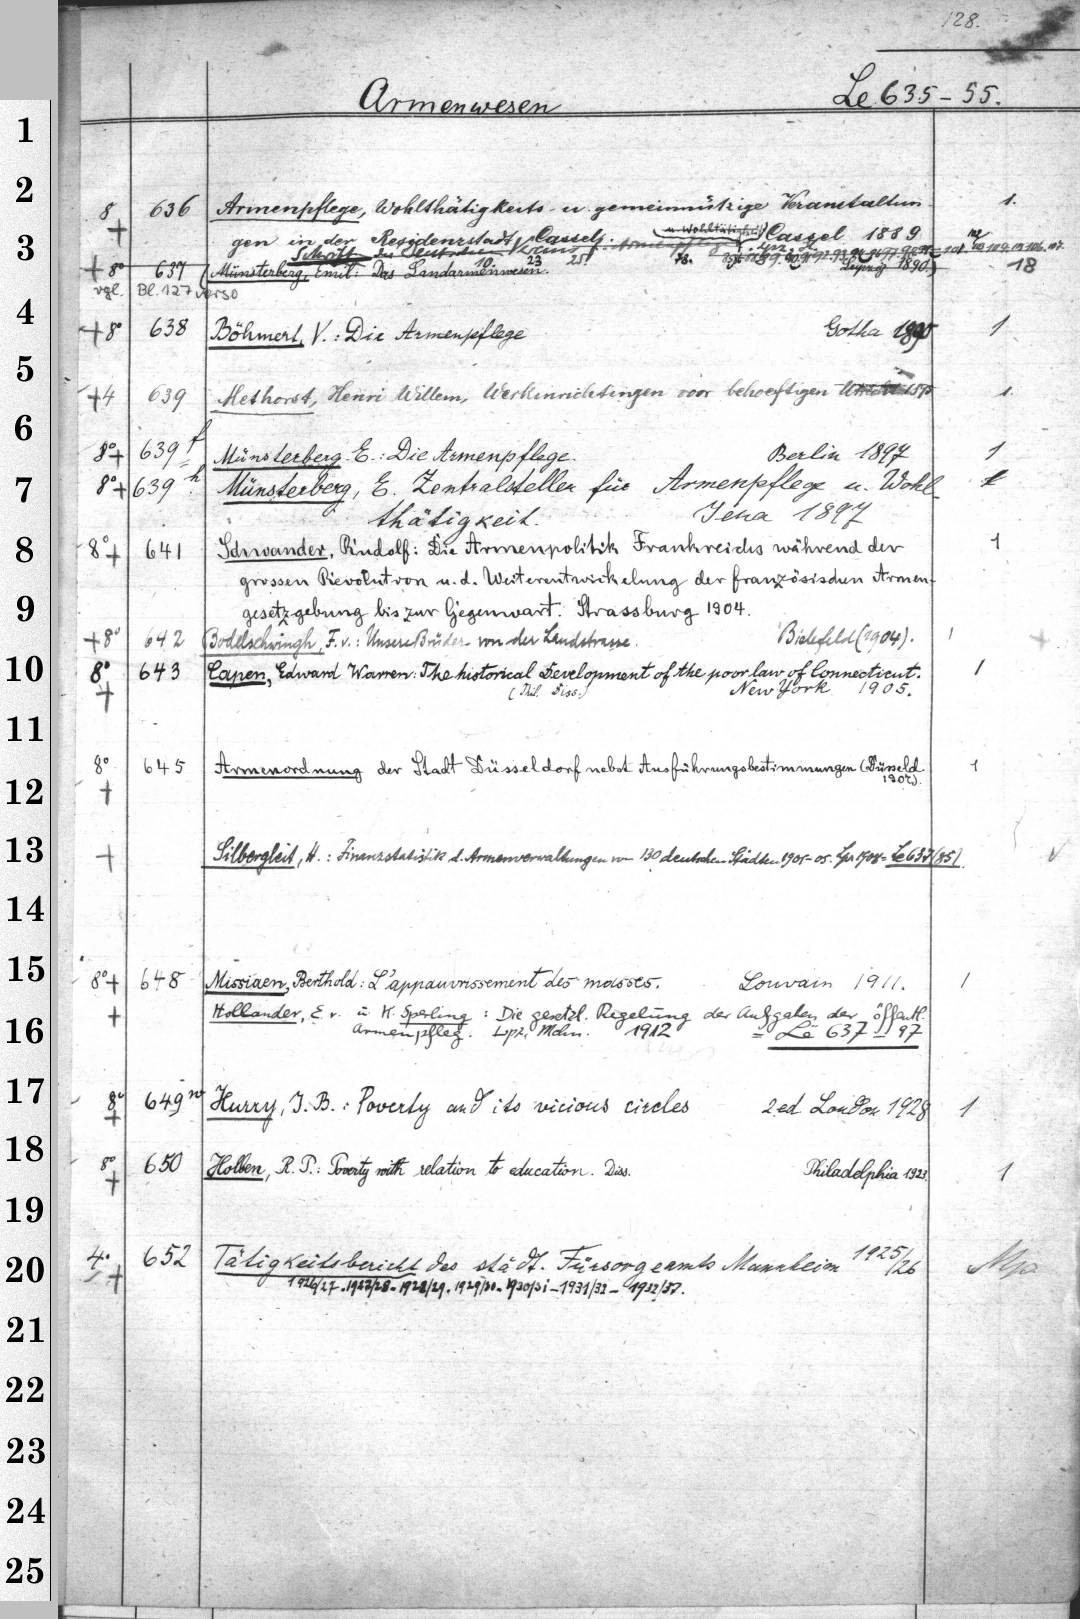 128.
Armenwesen Le 635-55.
1
2
8 + 636 Armenpflege, Wohlthätigkeits- u. gemeinnützige Veranstaltun- 1.
3
gen in der Residenzstadt Cassel. Cassel 1889
u. Wohltätigkeit
10. 23 25
+ 8° 637 (Münsterberg, Emil: Das Landarmenwesen. Leipzig 1890.) 18
vgl. Bl. 127 verso
4
+ 8° 638 Böhmert, V.: Die Armenpflege Gotha 1890 1
5
+4 639 Methorst, Henri Willem, Werkinrichtingen voor behoeftigen Utrecht 1895 1
6
8°+ 639 f Münsterberg E.: Die Armenpflege. Berlin 1897 1
7
8°+ 639 h Münsterberg, E. Zentralstellen für Armenpflege u. Wohl-
thätigkeit. Jena 1897
8
8°+ 641 Schwander, Rudolf: Die Armenpolitik Frankreichs während der 1
grossen Revolution u. d. Weiterentwickelung der französischen Armen-
9
gesetzgebung bis zur Gegenwart. Strassburg 1904.
+8° 642 Bodelschwingh, F. v.: Unsere Brüder von der Landstrasse. Bielefeld (1904). 1
10
8° + 643 Capen, Edward Warren: The historical Development of the poor law of Connecticut. 1
(Phil. Diss.) New York 1905.
11
8° + 645 Armenordnung der Stadt Düsseldorf nebst Ausführungsbestimmungen (Düsseld. 1
1907).
12
13
+ Silbergleit, H.: Finanzstatistik d. Armenverwaltungen von 130 deutschen Städten 1901-05. Lpz 1908 = Le 637 (85)
14
15
8°+ 648 Missiaen, Berthold: L'appauvrissement des masses. Louvain 1911. 1
+ Hollander, E. v. u. K. Sperling: Die gesetzl. Regelung der Aufgaben der öffentl.
16
Armenpfleg. Lpz, Mchn. 1912 = Le 637 = 97
17
8° + 649 Hurry, J. B.: Poverty and its vicious circles 2 ed London 1928 1
18
8° + 650 Holben, R. P.: Poverty with relation to education. Diss. Philadelphia 1923. 1
19
20
4° + 652 Tätigkeitsbericht des städt. Fürsorgeamts Mannheim 1925/26
1926/27 - 1927/28 - 1928/29, 1929/30 - 1930/31 - 1931/32 - 1932/33.
21
22
23
24
25